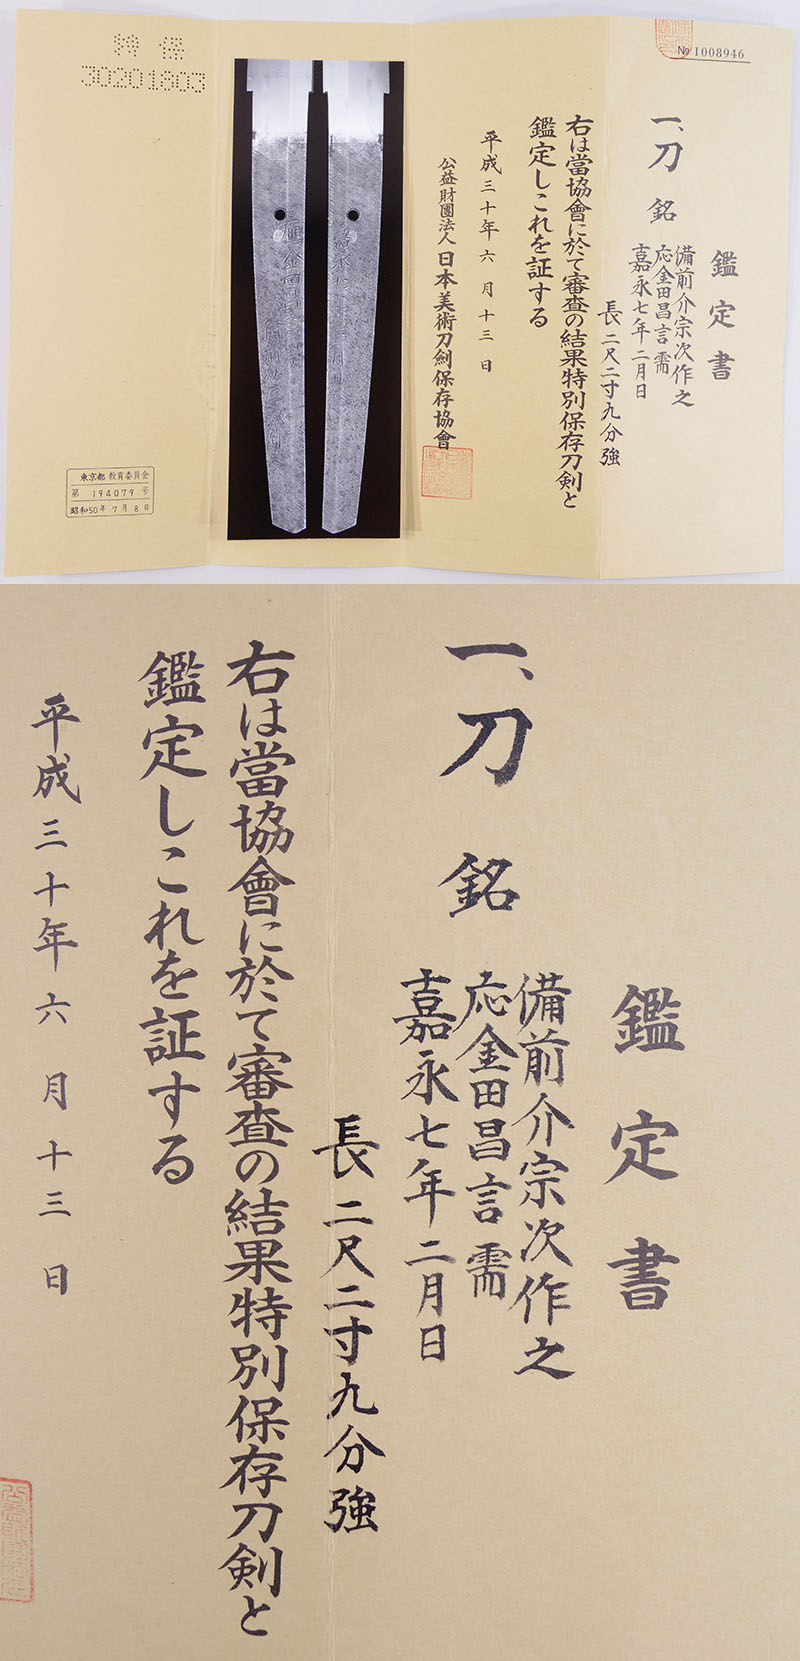 № 1008946
鑑定書
一、刀 銘
備前介宗次作之
応金田昌言需
嘉永七年二月日
長二尺二寸九分強
右は當協會に於て審査の結果特別保存刀剣と
鑑定しこれを証する
平成三十年六月十三日
公益財團法人日本美術刀剣保存協會
特保
30201803
東京都教育委員会
第 194079 号
昭和50年 7月 8日
鑑定書
一、刀 銘
備前介宗次作之
応金田昌言需
嘉永七年二月日
長二尺二寸九分強
右は當協會に於て審査の結果特別保存刀剣と
鑑定しこれを証する
平成三十年六月十三日